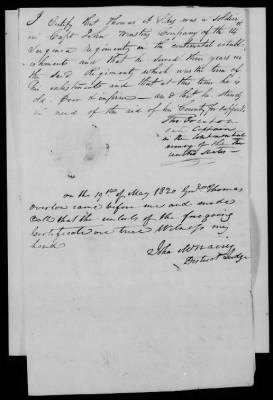 I Certify that Thomas A Viley was a soldier
in Capt John Winstons Company of the 14
Virginia Regiment on the continental establ-
ishment and that he served three years in
the said Regiment which was the term of
his enlistment and that at this time he is
old Poor & infirm — and that he stands
in need of the aid of his Country for support.
Tho Overton
Captain
in the continental
army of the
united states —
on the 19th of May 1820 Thomas
overton came before me and made
oath that the contents of the foregoing
Certificate are true Witness my
hand
John McNairy
District Judge